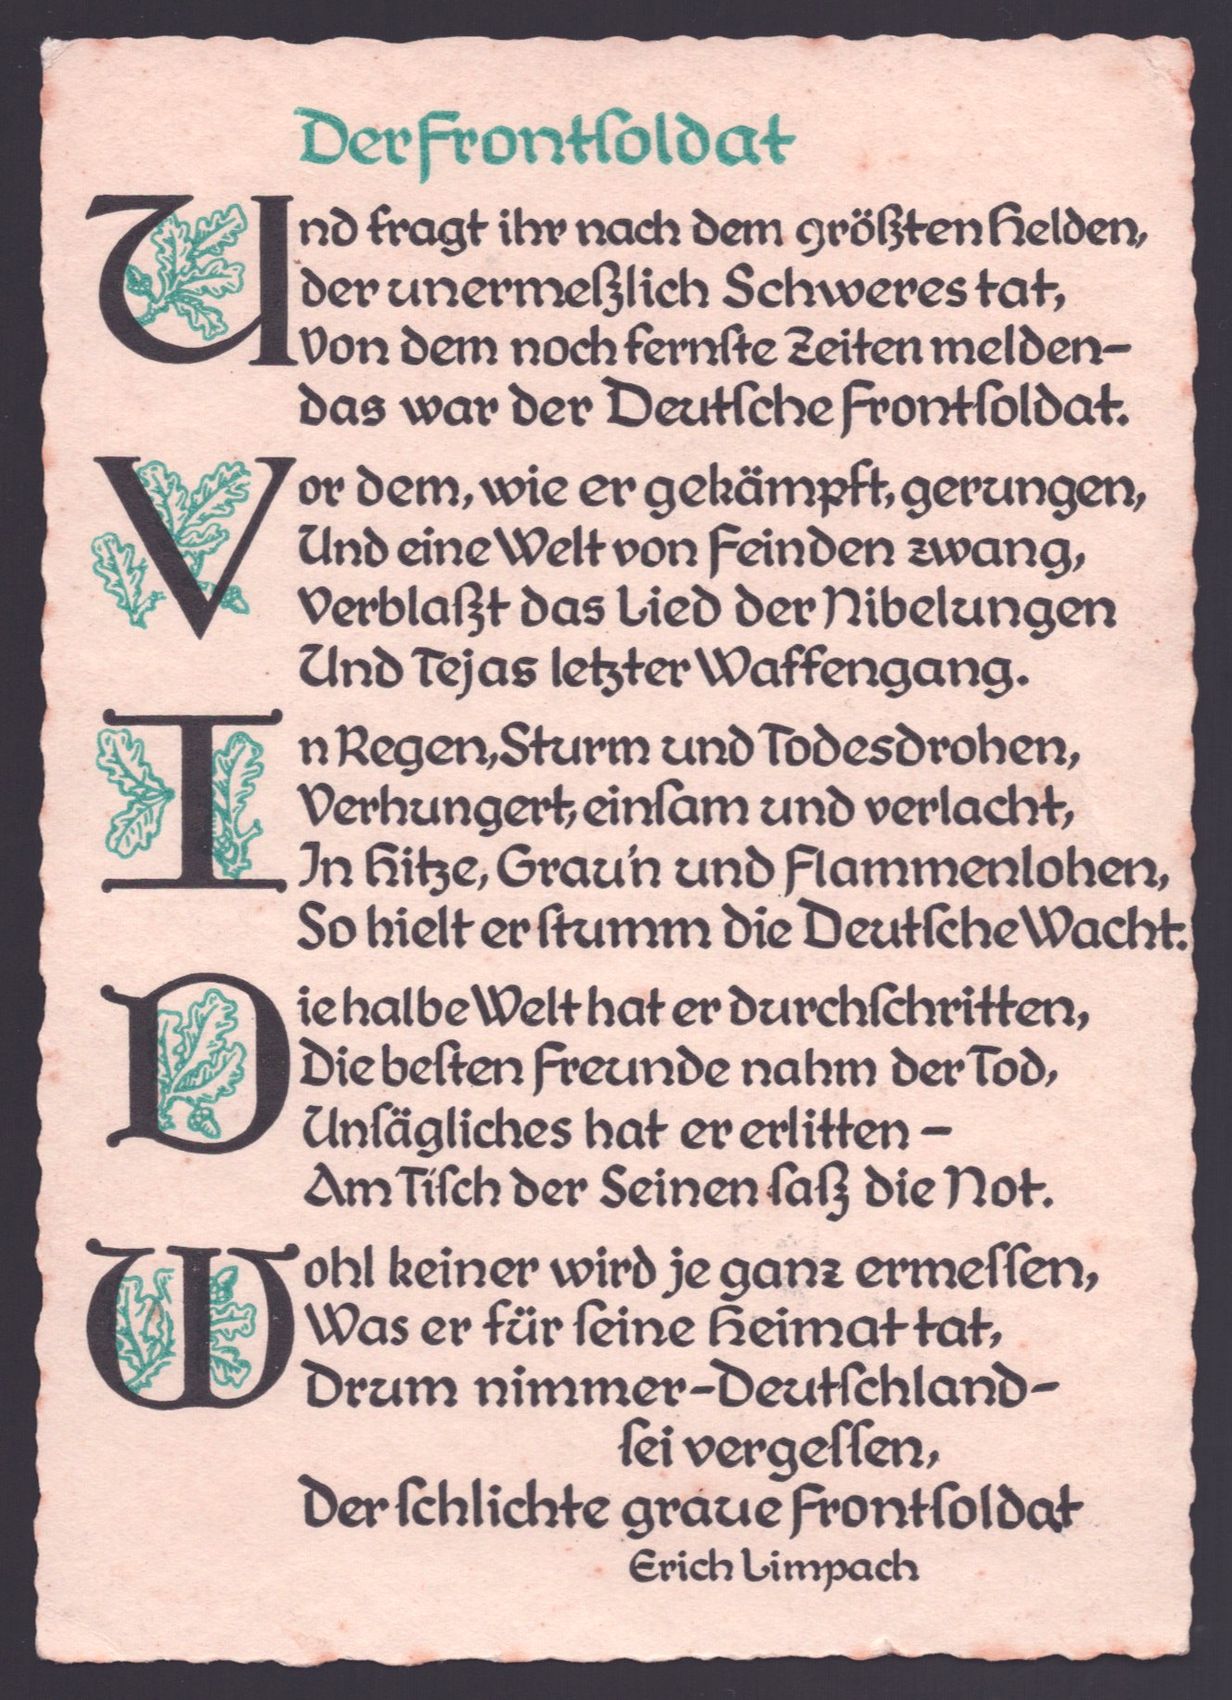 Der Frontsoldat
Und fragt ihr nach dem größten Helden,
der unermeßlich Schweres tat,
Von dem noch fernste Zeiten melden-
das war der Deutsche Frontsoldat.
Vor dem, wie er gekämpft, gerungen,
Und eine Welt von Feinden zwang,
Verblaßt das Lied der Nibelungen
Und Tejas letzter Waffengang.
In Regen, Sturm und Todesdrohen,
Verhungert, einsam und verlacht,
In Hitze, Grau'n und Flammenlohen,
So hielt er stumm die Deutsche Wacht.
Die halbe Welt hat er durchschritten,
Die besten Freunde nahm der Tod,
Unsägliches hat er erlitten –
Am Tisch der Seinen saß die Not.
Wohl keiner wird je ganz ermessen,
Was er für seine Heimat tat,
Drum nimmer-Deutschland-
sei vergessen,
Der schlichte graue Frontsoldat
Erich Limpach